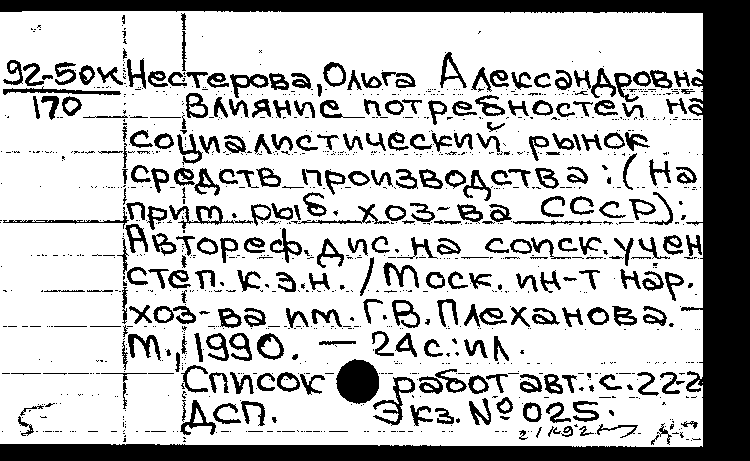 92-50к Нестерова, Ольга Александровна
170 Влияние потребностей на
социалистический рынок
средств производства: (На
прим. рыб. хоз-ва СССР):
Автореф. дис. на соиск. учен
степ. к.э.н. / Моск. ин-т нар.
хоз-ва им. Г.В. Плеханова. —
М., 1990. — 24 с.: ил.
Список работ авт.: с. 22-2
ДСП. Экз. № 025.
5